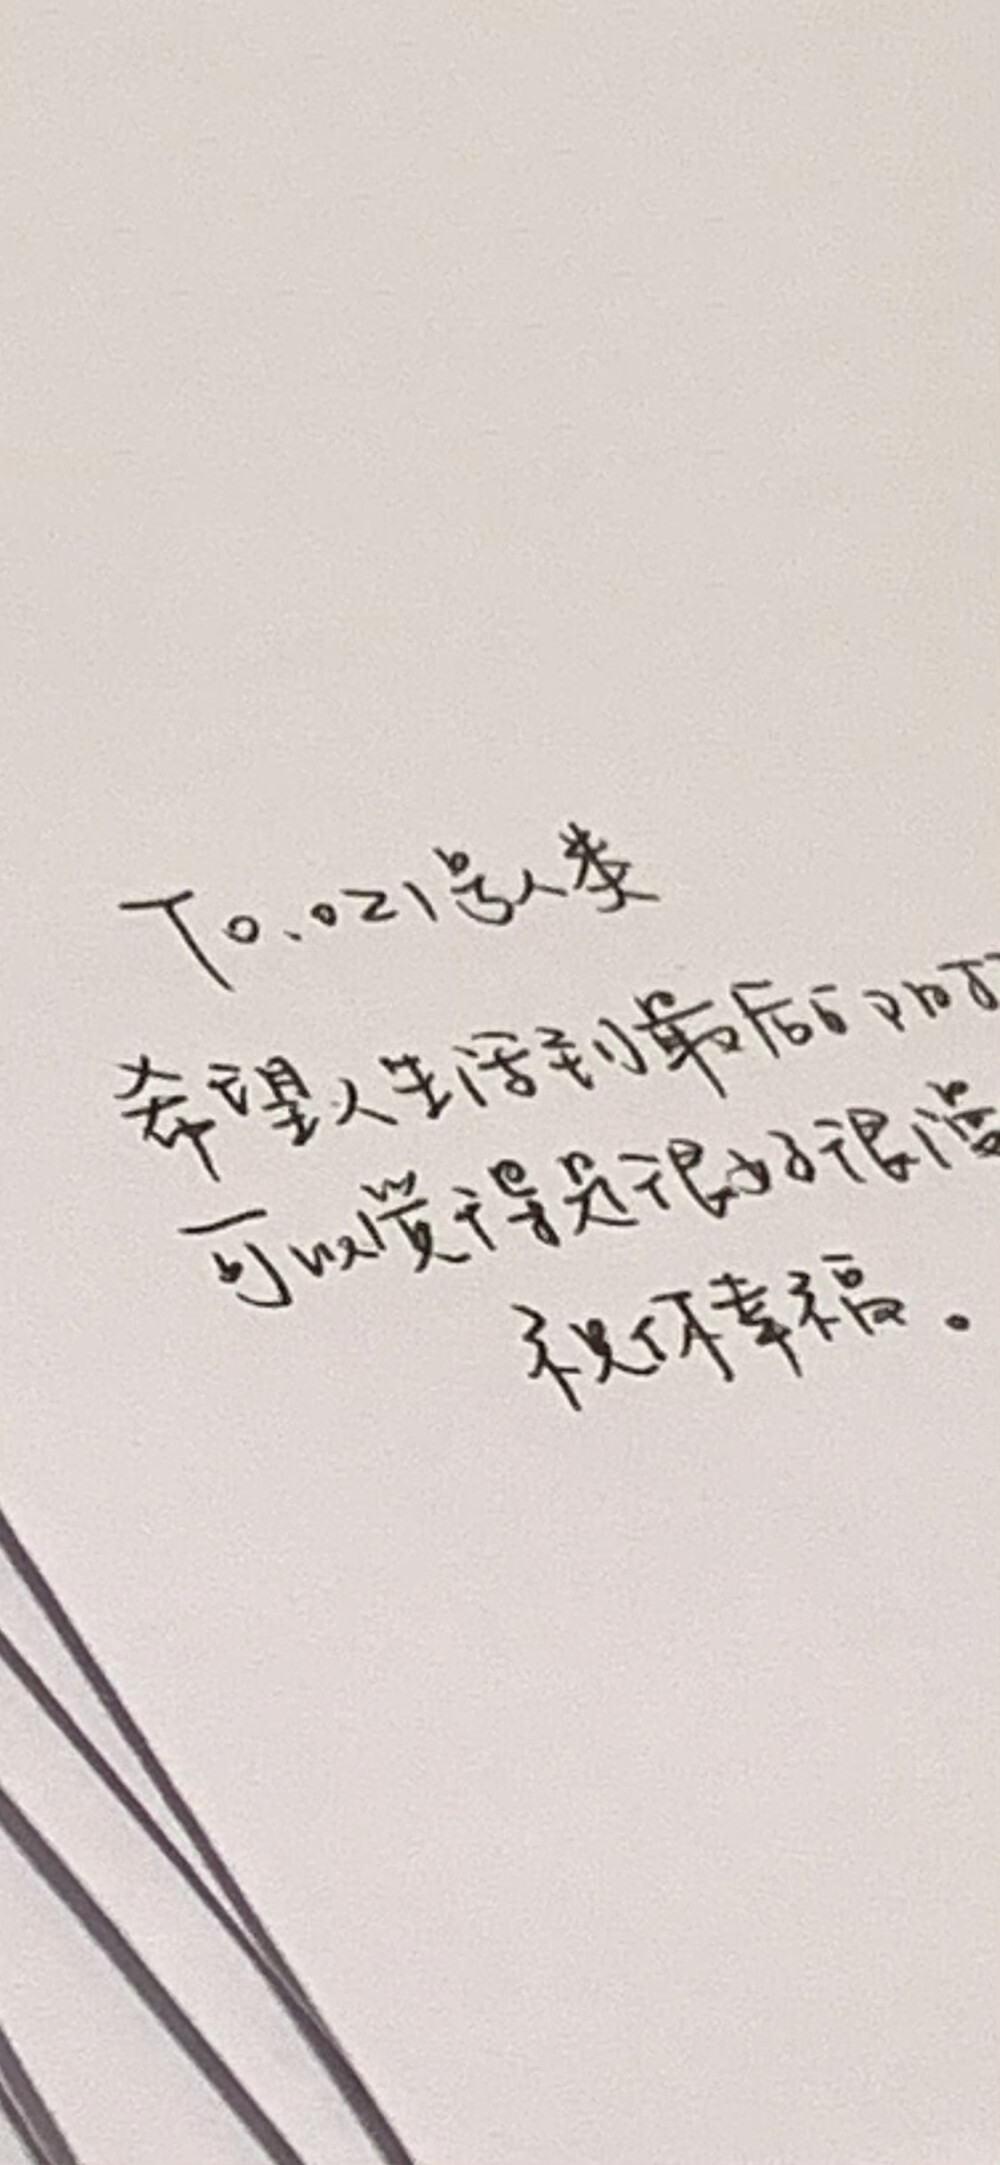 To.021号人类
希望人生活到最后的时
可以觉得是很好很满
祝你幸福。